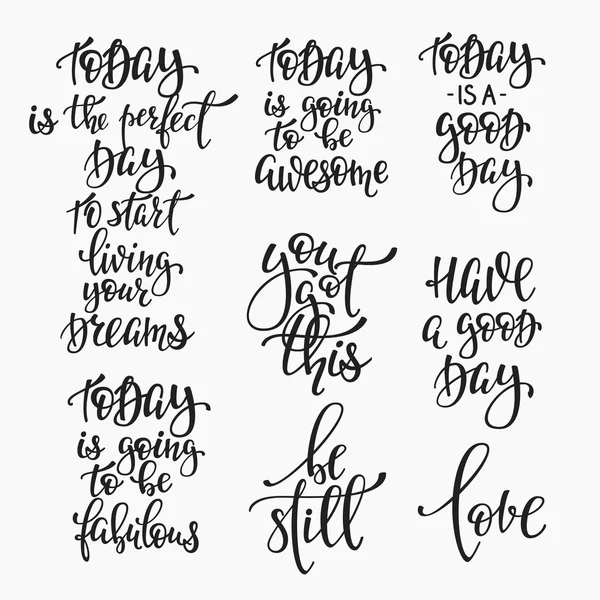 TODAY
is the perfect
DAY
TO start
living
your
DREAMS
TODAY
is going
to be
fabulous
TODAY
is going
to be
awesome
you
got
this
be
still
TODAY
-IS A-
good
DAY
HAVE
a good
DAY
love